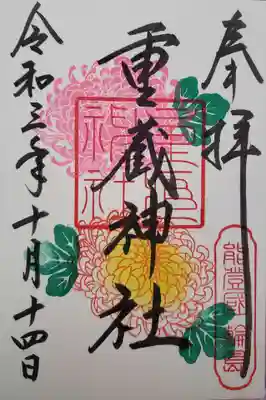 奉拝
能登國輪島
重蔵神社
重蔵神社
令和三年十月十四日